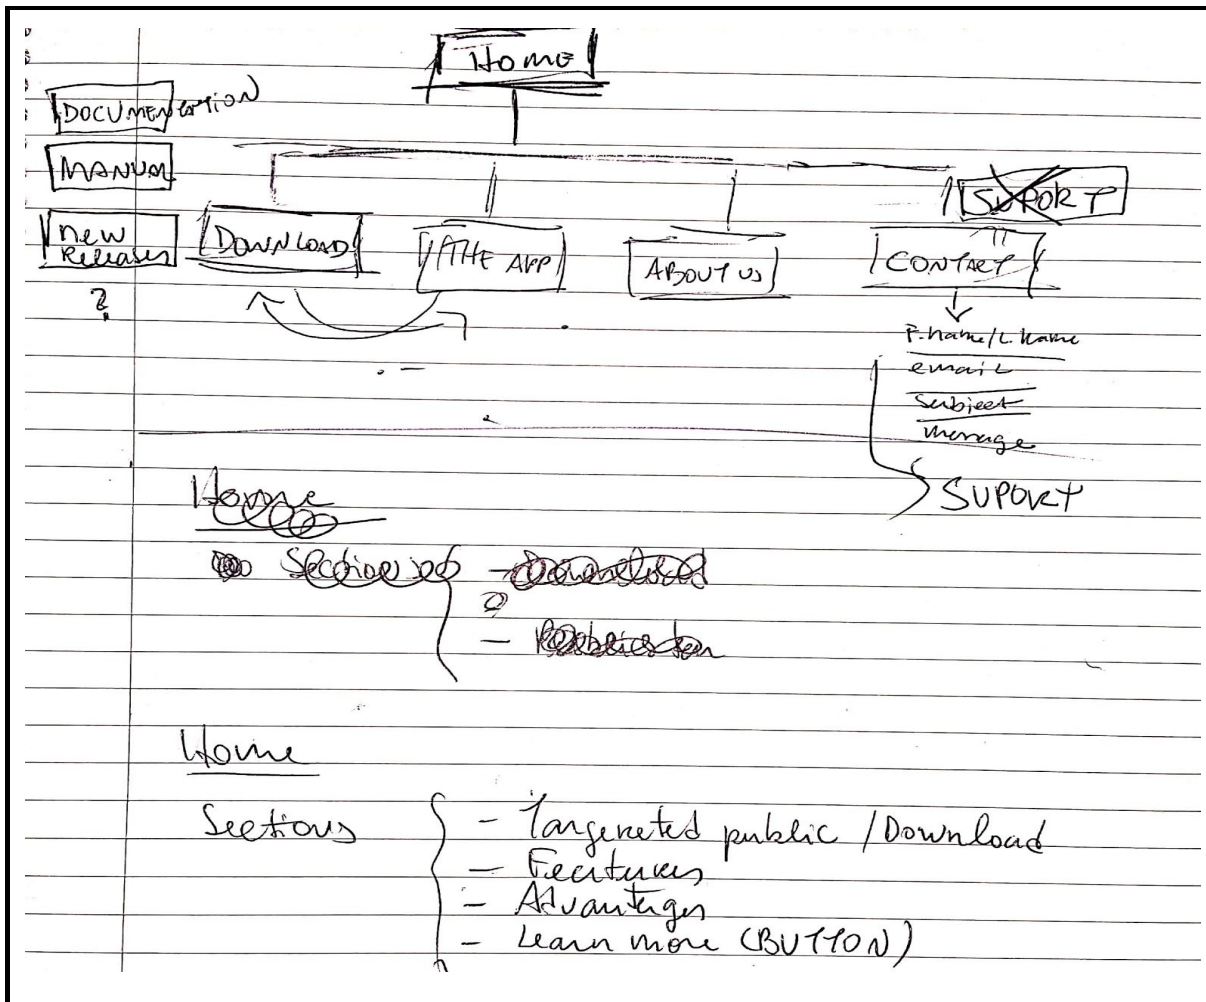 HOME
DOCUMENTATION
MANUAL
SUPORT
new
Releases
?
DOWNLOAD
THE APP
ABOUT US
CONTACT
F.name/L.name
email
Subject
message
SUPORT
Home
?
Home
Sections
- Targeneted public / Download
- Features
- Advantages
- Learn more (BUTTON)